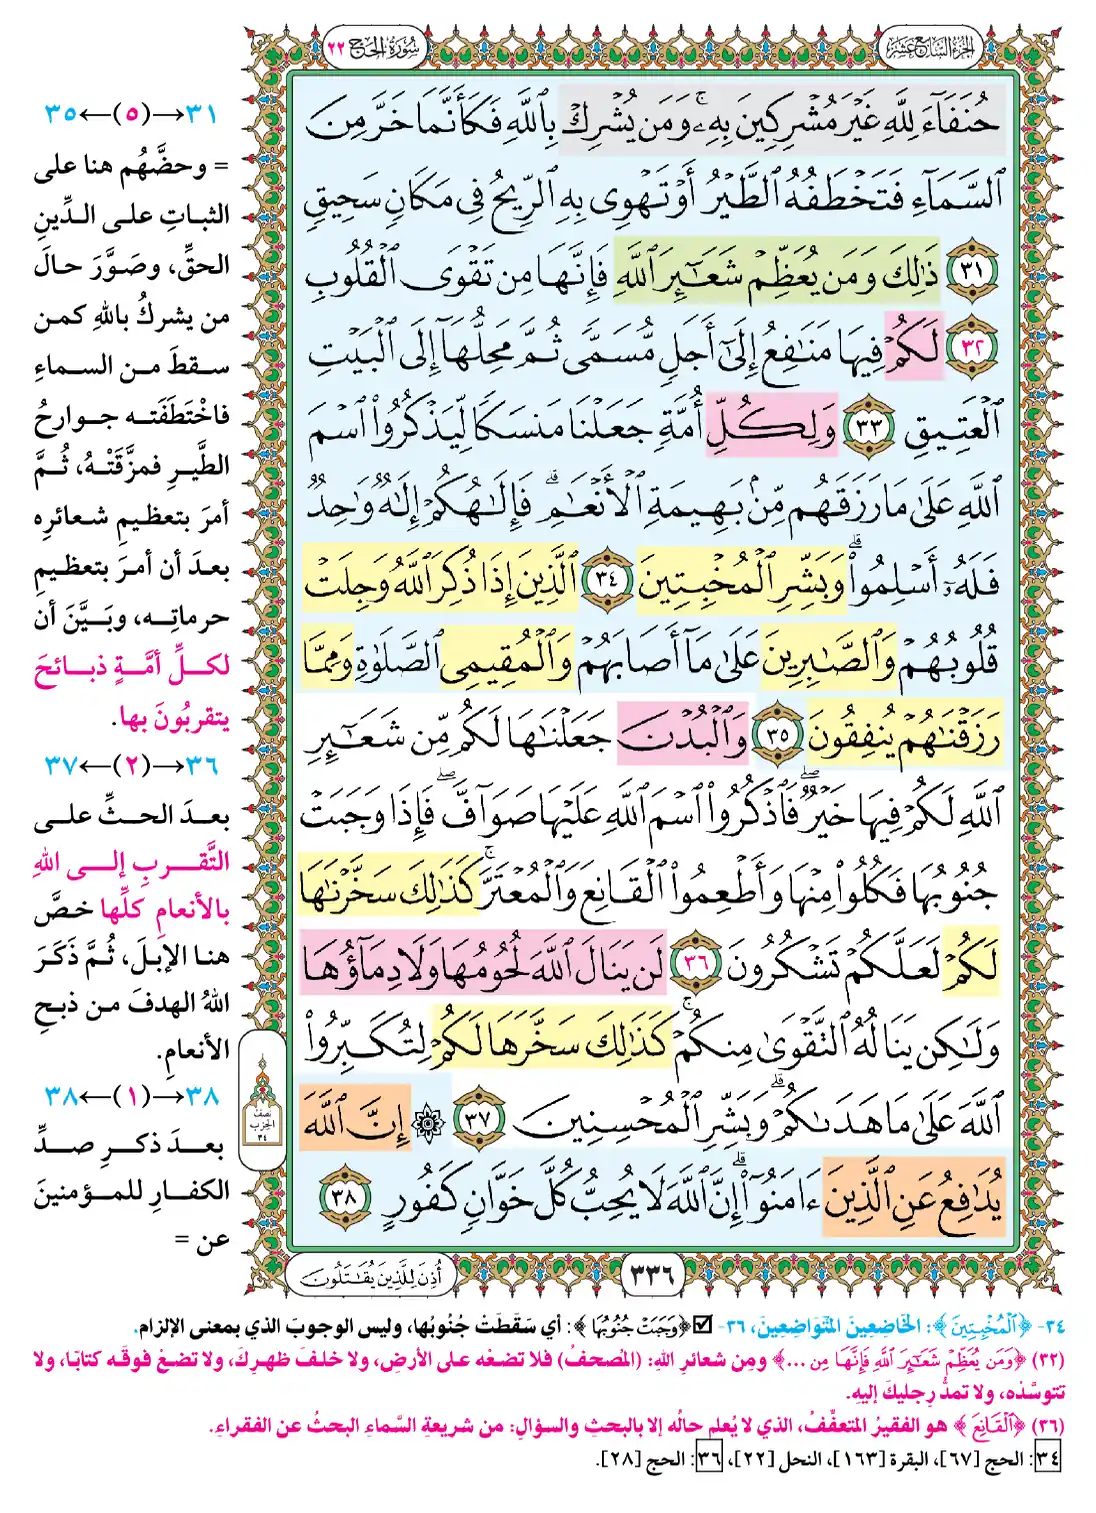 الجزء السابع عشر
سورة الحج ٢٢
حُنَفَآءَ لِلَّهِ غَيْرَ مُشْرِكِينَ بِهِۦۚ وَمَن يُشْرِكْ بِٱللَّهِ فَكَأَنَّمَا خَرَّ مِنَ
ٱلسَّمَآءِ فَتَخْطَفُهُ ٱلطَّيْرُ أَوْ تَهْوِى بِهِ ٱلرِّيحُ فِى مَكَانٍ سَحِيقٍ
٣١ ذَٰلِكَ وَمَن يُعَظِّمْ شَعَٰٓئِرَ ٱللَّهِ فَإِنَّهَا مِن تَقْوَى ٱلْقُلُوبِ
٣٢ لَكُمْ فِيهَا مَنَٰفِعُ إِلَىٰٓ أَجَلٍ مُّسَمًّى ثُمَّ مَحِلُّهَآ إِلَى ٱلْبَيْتِ
ٱلْعَتِيقِ ٣٣ وَلِكُلِّ أُمَّةٍ جَعَلْنَا مَنسَكًا لِّيَذْكُرُوا۟ ٱسْمَ
ٱللَّهِ عَلَىٰ مَا رَزَقَهُم مِّنۢ بَهِيمَةِ ٱلْأَنْعَٰمِۗ فَإِلَٰهُكُمْ إِلَٰهٌ وَٰحِدٌ
فَلَهُۥٓ أَسْلِمُوا۟ۗ وَبَشِّرِ ٱلْمُخْبِتِينَ ٣٤ ٱلَّذِينَ إِذَا ذُكِرَ ٱللَّهُ وَجِلَتْ
قُلُوبُهُمْ وَٱلصَّٰبِرِينَ عَلَىٰ مَآ أَصَابَهُمْ وَٱلْمُقِيمِى ٱلصَّلَوٰةِ وَمِمَّا
رَزَقْنَٰهُمْ يُنفِقُونَ ٣٥ وَٱلْبُدْنَ جَعَلْنَٰهَا لَكُم مِّن شَعَٰٓئِرِ
ٱللَّهِ لَكُمْ فِيهَا خَيْرٌۖ فَٱذْكُرُوا۟ ٱسْمَ ٱللَّهِ عَلَيْهَا صَوَآفَّۖ فَإِذَا وَجَبَتْ
جُنُوبُهَا فَكُلُوا۟ مِنْهَا وَأَطْعِمُوا۟ ٱلْقَانِعَ وَٱلْمُعْتَرَّۚ كَذَٰلِكَ سَخَّرْنَٰهَا
لَكُمْ لَعَلَّكُمْ تَشْكُرُونَ ٣٦ لَن يَنَالَ ٱللَّهَ لُحُومُهَا وَلَا دِمَآؤُهَا
وَلَٰكِن يَنَالُهُ ٱلتَّقْوَىٰ مِنكُمْۚ كَذَٰلِكَ سَخَّرَهَا لَكُمْ لِتُكَبِّرُوا۟
ٱللَّهَ عَلَىٰ مَا هَدَىٰكُمْۗ وَبَشِّرِ ٱلْمُحْسِنِينَ ٣٧ ۞ إِنَّ ٱللَّهَ
يُدَٰفِعُ عَنِ ٱلَّذِينَ ءَامَنُوٓا۟ۗ إِنَّ ٱللَّهَ لَا يُحِبُّ كُلَّ خَوَّانٍ كَفُورٍ ٣٨
٣٣٦
أُذِنَ لِلَّذِينَ يُقَٰتَلُونَ
٣١→(٥)←٣٥
= وحضَّهُم هنا على
الثباتِ على الدِّينِ
الحقِّ، وصَوَّرَ حالَ
من يشركُ باللهِ كمن
سقطَ من السماءِ
فاخْتَطَفَته جوارحُ
الطَّيرِ فمزَّقَتْهُ، ثُمَّ
أمرَ بتعظيمِ شعائرِه
بعدَ أن أمرَ بتعظيمِ
حرماتِه، وبَيَّنَ أن
لكلِّ أمَّةٍ ذبائحَ
يتقربُونَ بها.
٣٦→(٢)←٣٧
بعدَ الحثِّ على
التَّقربِ إلى اللهِ
بالأنعامِ كلِّها خصَّ
هنا الإبلَ، ثُمَّ ذَكَرَ
اللهُ الهدفَ من ذبحِ
الأنعامِ.
٣٨→(١)←٣٨
بعدَ ذكرِ صدِّ
الكفارِ للمؤمنينَ
عن =
نصف
الحزب
٣٤
٣٤- ﴿ٱلْمُخْبِتِينَ﴾: الخَاضِعِينَ المُتَوَاضِعِينَ، ٣٦- ☑ ﴿وَجَبَتْ جُنُوبُهَا﴾: أي سَقَطَتْ جُنُوبُها، وليس الوجوبَ الذي بمعنى الإلزام.
(٣٢) ﴿وَمَن يُعَظِّمْ شَعَٰٓئِرَ ٱللَّهِ فَإِنَّهَا مِن ...﴾ ومِن شعائرِ اللهِ: (المُصحفُ) فلا تضعْه على الأرضِ، ولا خلفَ ظهرِكَ، ولا تضعْ فوقَه كتابًا، ولا
تتوسَّدْه، ولا تمدُّ رِجليكَ إليهِ.
(٣٦) ﴿ٱلْقَانِعَ﴾ هو الفقيرُ المتعفِّفُ، الذي لا يُعلم حالُه إلا بالبحثِ والسؤالِ: من شريعةِ السَّماءِ البحثُ عن الفقراءِ.
٣٤: الحج [٦٧]، البقرة [١٦٣]، النحل [٢٢]، ٣٦: الحج [٢٨].